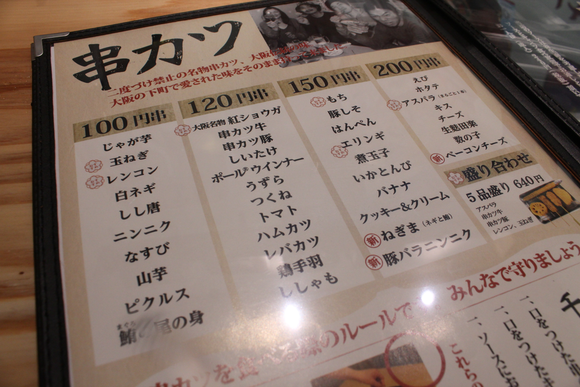 串カツ
二度づけ禁止の名物串カツ、大阪
大阪の下町で愛された味をそのまま
100円串
じゃが芋
玉ねぎ
レンコン
白ネギ
しし唐
ニンニク
なすび
山芋
ピクルス
尾の身
120円串
大阪名物 紅ショウガ
串カツ牛
串カツ豚
しいたけ
ポールウインナー
うずら
つくね
トマト
ハムカツ
レバカツ
鶏手羽
ししゃも
150円串
もち
豚しそ
はんぺん
エリンギ
煮玉子
いかとんび
バナナ
クッキー&クリーム
新 ねぎま(ネギと鮪)
新 豚バラニンニク
200円串
えび
ホタテ
アスパラ(まるごと1本)
キス
チーズ
生麩田楽
数の子
新 ベーコンチーズ
盛り合わせ
5品盛り 640円
アスパラ
串カツ牛
串カツ豚
レンコン、玉ねぎ
串カツを食べる際のルールです みんなで守りましょう
一、口をつけた
一、ソースに
これら